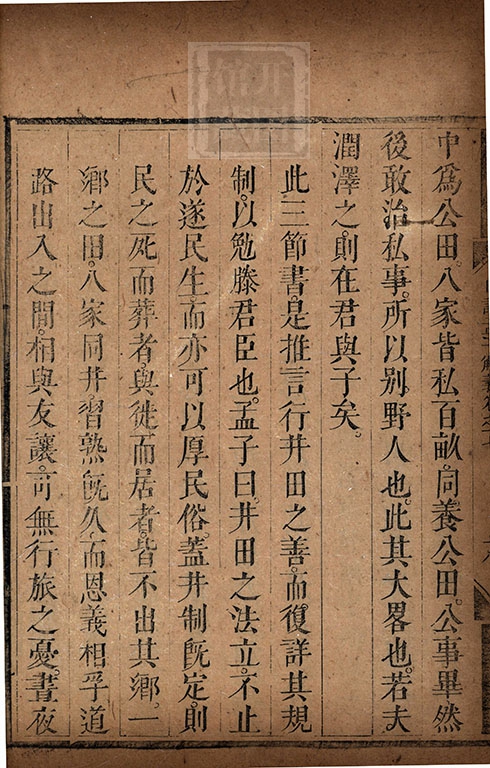 中爲公田八家皆私百畝同養公田公事畢然
後敢治私事所以别野人也此其大畧也若夫
潤澤之則在君與子矣
此三節書是推言行井田之善而復詳其規
制以勉滕君臣也孟子曰井田之法立不止
於遂民生而亦可以厚民俗蓋井制旣定則
民之死而葬者與徙而居者皆不出其鄉一
鄉之田八家同井習熟旣久而恩義相孚道
路出入之間相與友讓可無行旅之憂晝夜